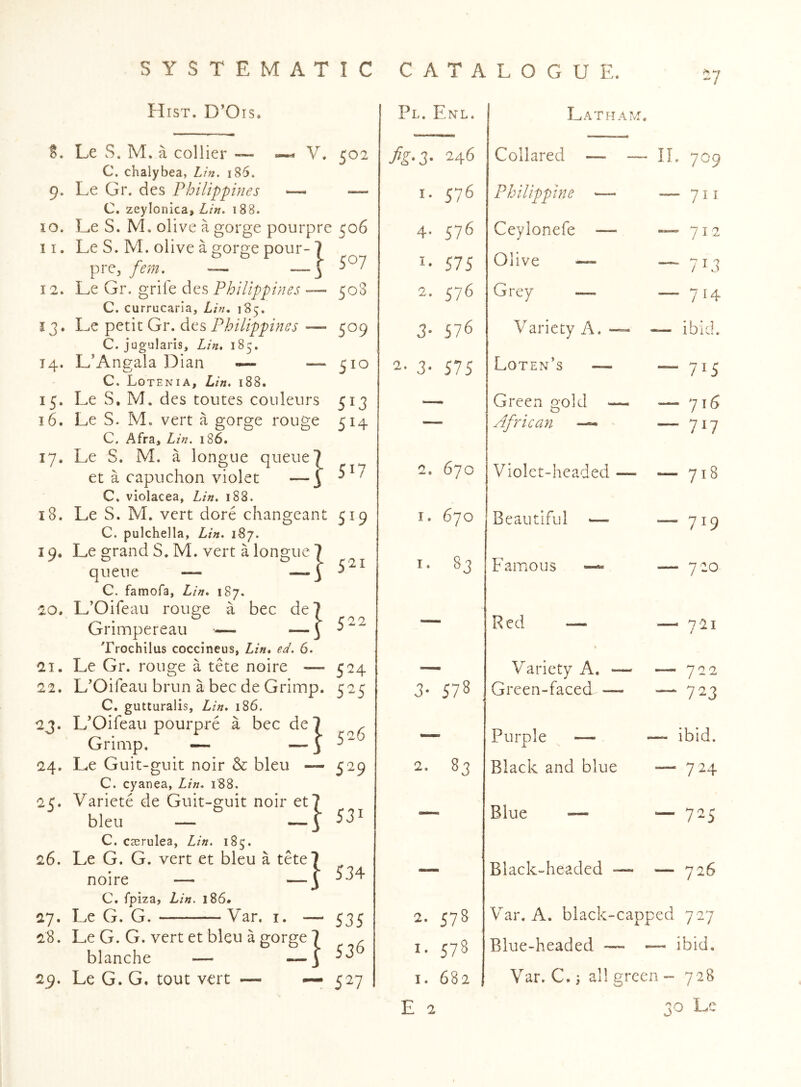 SYSTEMATIC CATALOGUE. 27
Hist. D'Ois. Pl. Enl. Latham.
8. Le S. M. à collier — — V. 502 fig. 3. 246 Collared — — II. 709
C. chalybea, Lin. 186.
9. Le Gr. des Philippines — — 1. 576 Philippine — — 711
C. zeylonica, Lin. 188.
10. Le S. M. olive à gorge pourpre 506 4. 576 Ceylonese — — 712
11. Le S. M. olive à gorge pour- }
pre, fem. — — } 507 1. 575 Olive — — 713
12. Le Gr. grise des Philippines — 508 2. 576 Grey — — 714
C. currucaria, Lin. 185.
13. Le petit Gr. des Philippines — 509 3. 576 Variety A. — — ibid.
C. jugularis, Lin. 185.
14. L'Angala Dian — — 510 2. 3. 575 Loten's — — 715
C. Lotenia, Lin. 188.
15. Le S. M. des toutes couleurs 513 — Green gold — — 716
16. Le S. M. vert à gorge rouge 514 — African — — 717
C. Afra, Lin. 186.
17. Le S. M. à longue queue }
et à capuchon violet — } 517 2. 670 Violet-headed — — 718
C. violacea, Lin. 188.
18. Le S. M. vert doré changeant 519 1. 670 Beautiful — — 719
C. pulchella, Lin. 187.
19. Le grand S. M. vert à longue }
queue — — } 521 1. 83 Famous — — 720
C. famosa, Lin. 187.
20. L'Oiseau rouge à bec de }
Grimpereau — — } 522 — Red — — 721
Trochilus coccineus, Lin. ed. 6.
21. Le Gr. rouge à tête noire — 524 — Variety A. — — 722
22. L'Oiseau brun à bec de Grimp. 525 3. 578 Green-faced — — 723
C. gutturalis, Lin. 186.
23. L'Oiseau pourpré à bec de }
Grimp. — — } 526 — Purple — — ibid.
24. Le Guit-guit noir & bleu — 529 2. 83 Black and blue — 724
C. cyanea, Lin. 188.
25. Varieté de Guit-guit noir et }
bleu — — } 531 — Blue — — 725
C. cærulea, Lin. 185.
26. Le G. G. vert et bleu à tête }
noire — — } 534 — Black-headed — — 726
C. spiza, Lin. 186.
27. Le G. G. ——— Var. 1. — 535 2. 578 Var. A. black-capped 727
28. Le G. G. vert et bleu à gorge }
blanche — — } 536 1. 578 Blue-headed — — ibid.
29. Le G. G. tout vert — — 527 1. 682 Var. C.; all green - 728
E 2 30 Le